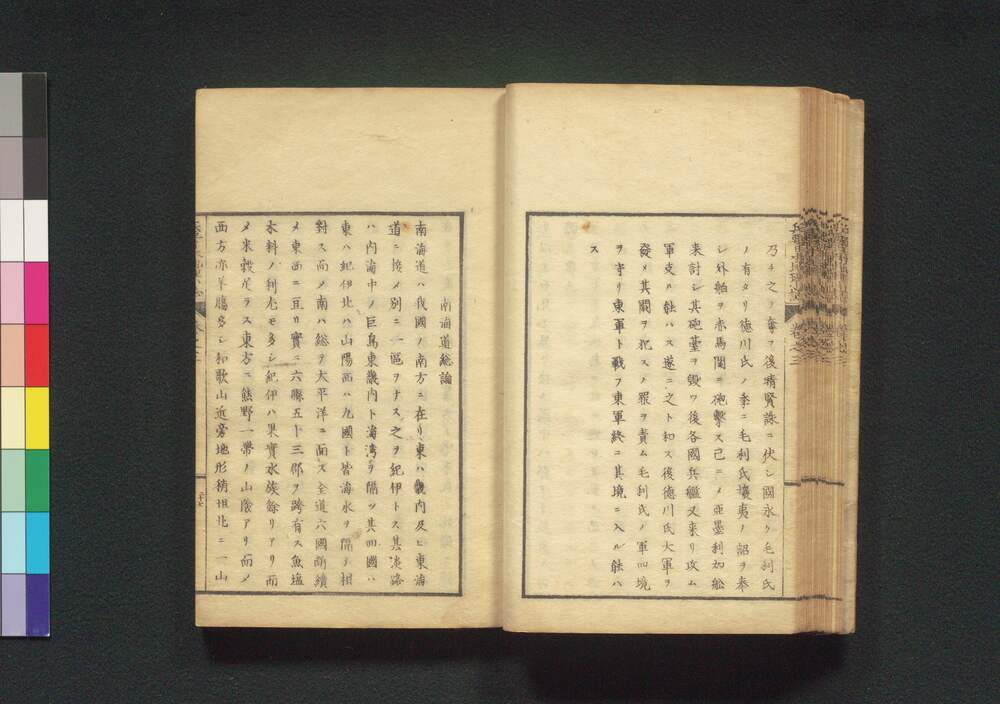 乃チ之ヲ奪フ後晴賢誅ニ伏シ國永ク毛利氏
ノ有タリ徳川氏ノ季ニ毛利氏攘夷ノ詔ヲ奉
シ外舶ヲ赤馬關ニ砲擊ス己ニメ亜墨利加舩
来討シ其砲䑓ヲ毀ツ後各國兵艦又来リ攻ム
軍支ル能ハス遂ニ之ト和ス後徳川氏大軍ヲ
發メ其闕ヲ犯スノ罪ヲ責ム毛利氏ノ軍四境
ヲ守リ東軍ト戰フ東軍終ニ其境ニ入ル能ハ
ス
南海道総論
南海道ハ我國ノ南方ニ在リ東ハ畿内及ヒ東海
道ニ接メ別ニ一區ヲナス之ヲ紀伊トス其淡路
ハ内海中ノ巨島東畿内ト海湾ヲ隔ツ其四國ハ
東ハ紀伊北ハ山陽西ハ九國ト皆海水ヲ隔テ相
對ス而メ南ハ総テ大平洋ニ面ス全道六國断續
メ東西ニ亘リ實ニ六縣五十三郡ヲ跨有ス魚塩
木料ノ利尤モ多シ紀伊ハ果實水族餘リアリ而
メ米穀足ラス東方ニ熊野一帯ノ山蔭アリ而メ
西方亦羊膓多シ和歌山近旁地形稍坦北ニ一山